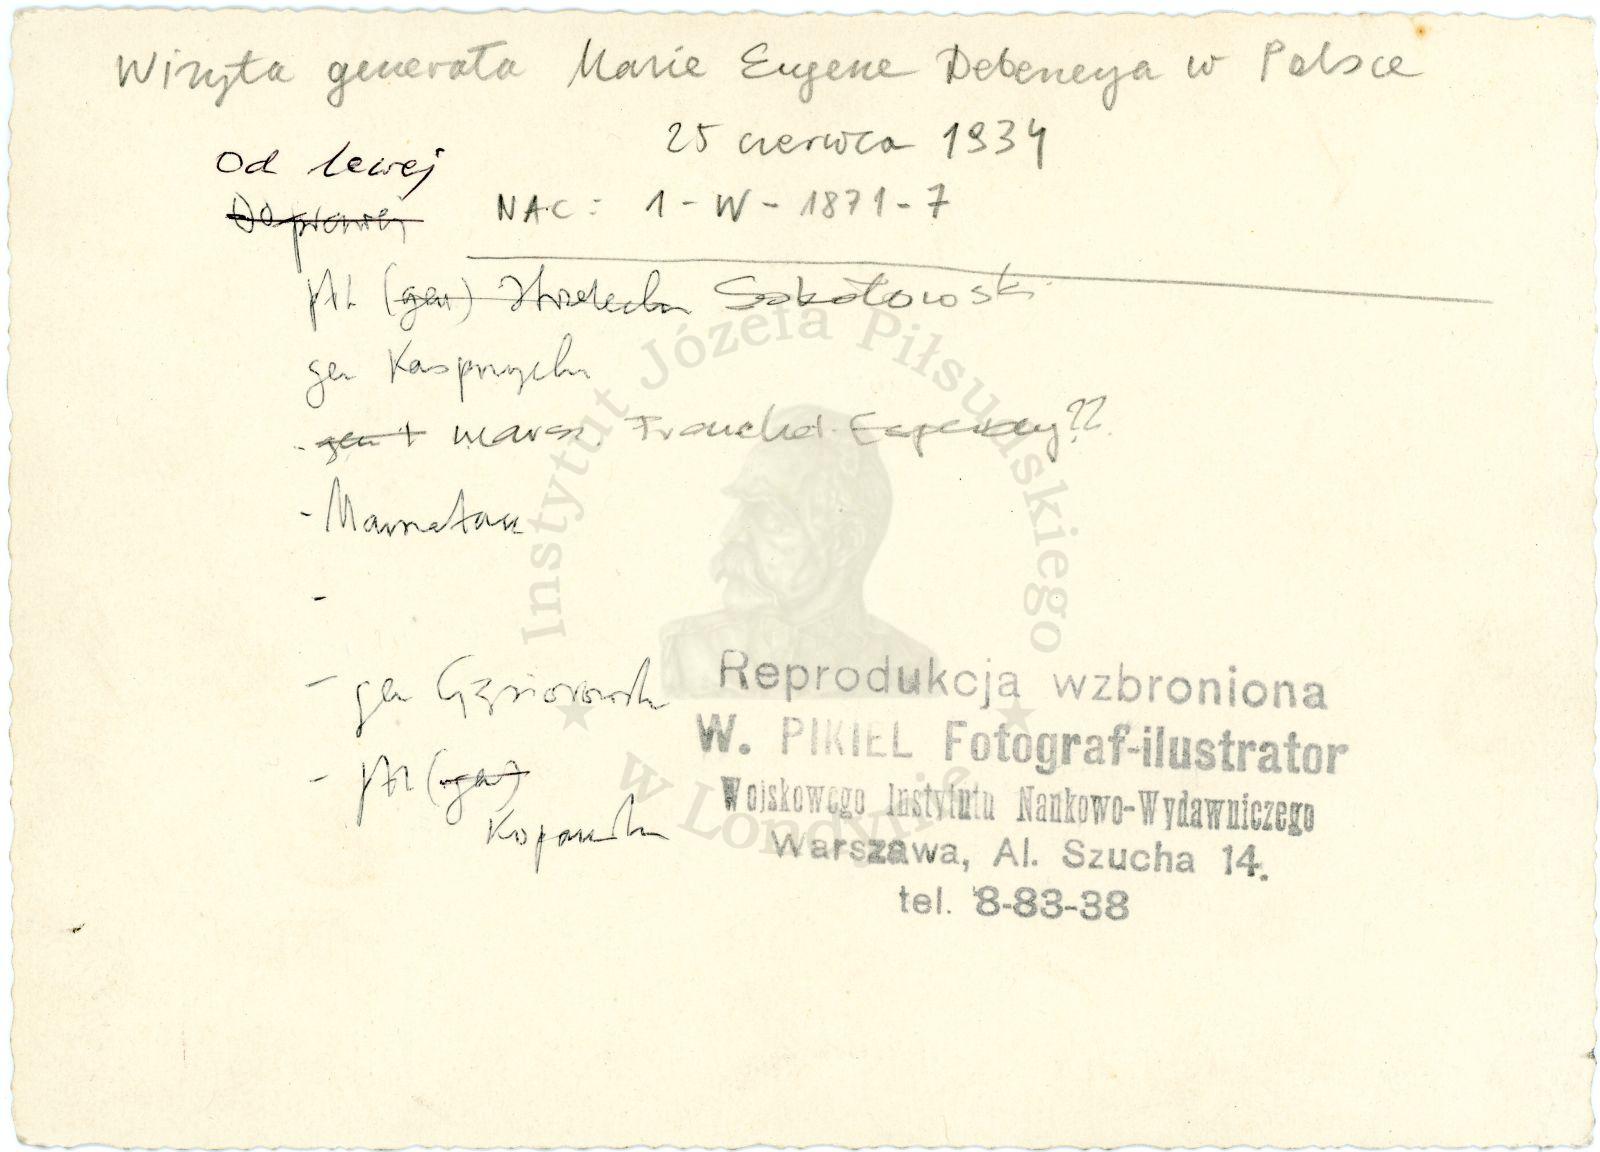 Wizyta generała Marie Eugene Debeneya w Polsce
25 czerwca 1934
Od lewej
NAC: 1-W-1871-7
płk (gen) Sokołowski
gen Kasprzycki
- gen marsz. Franchet ??
-
-
- gen Gąsiorowski
- płk (gen)
Kopański
Instytut Józefa Piłsudskiego
w Londynie
Reprodukcja wzbroniona
W. PIKIEL Fotograf-ilustrator
Wojskowego Instytutu Naukowo-Wydawniczego
Warszawa, Al. Szucha 14.
tel. 8-83-38